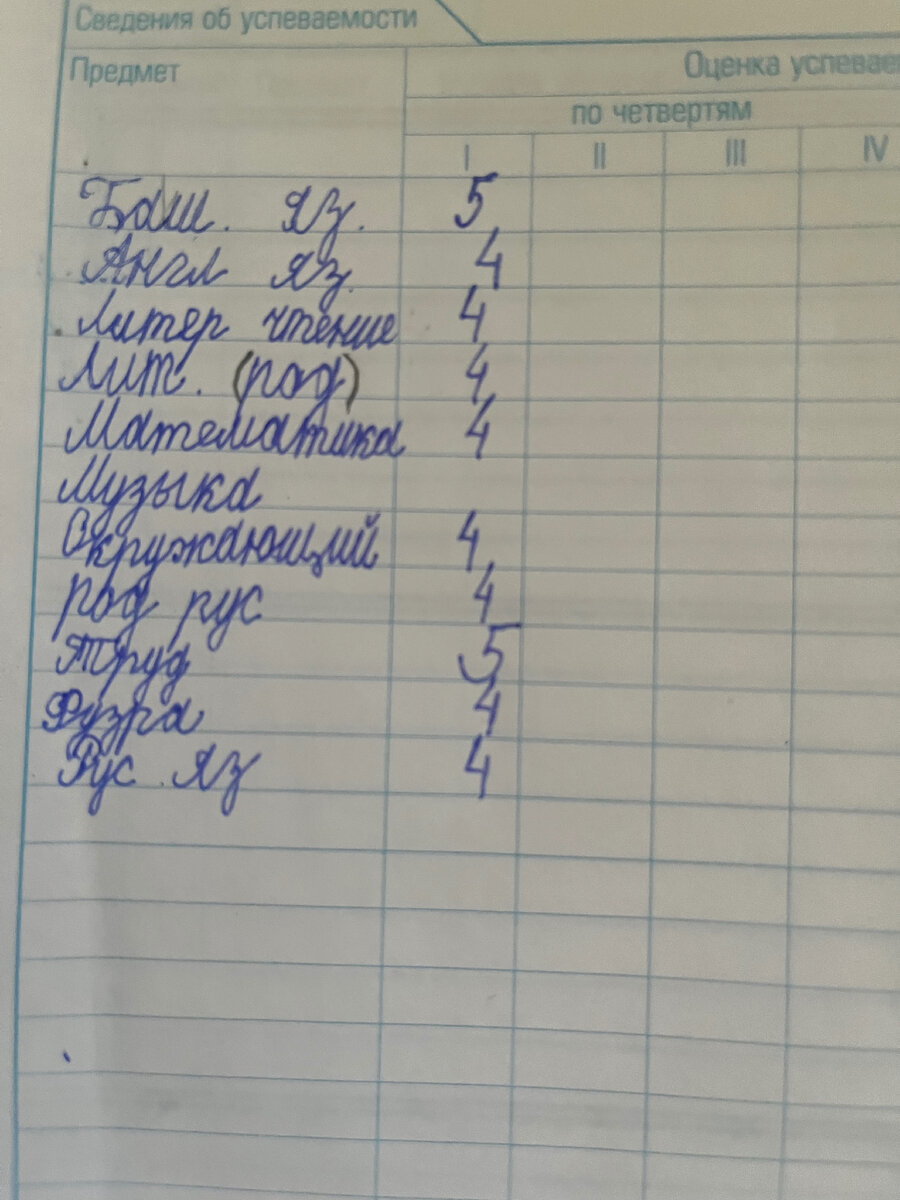 Сведения об успеваемости
Предмет Оценка успевае
по четвертям
I II III IV
Баш. яз. 5
Англ яз. 4
Литер чтение 4
Лит. (род) 4
Математика 4
Музыка
Окружающий 4
род рус 4
Труд 5
Физра 4
Рус яз 4